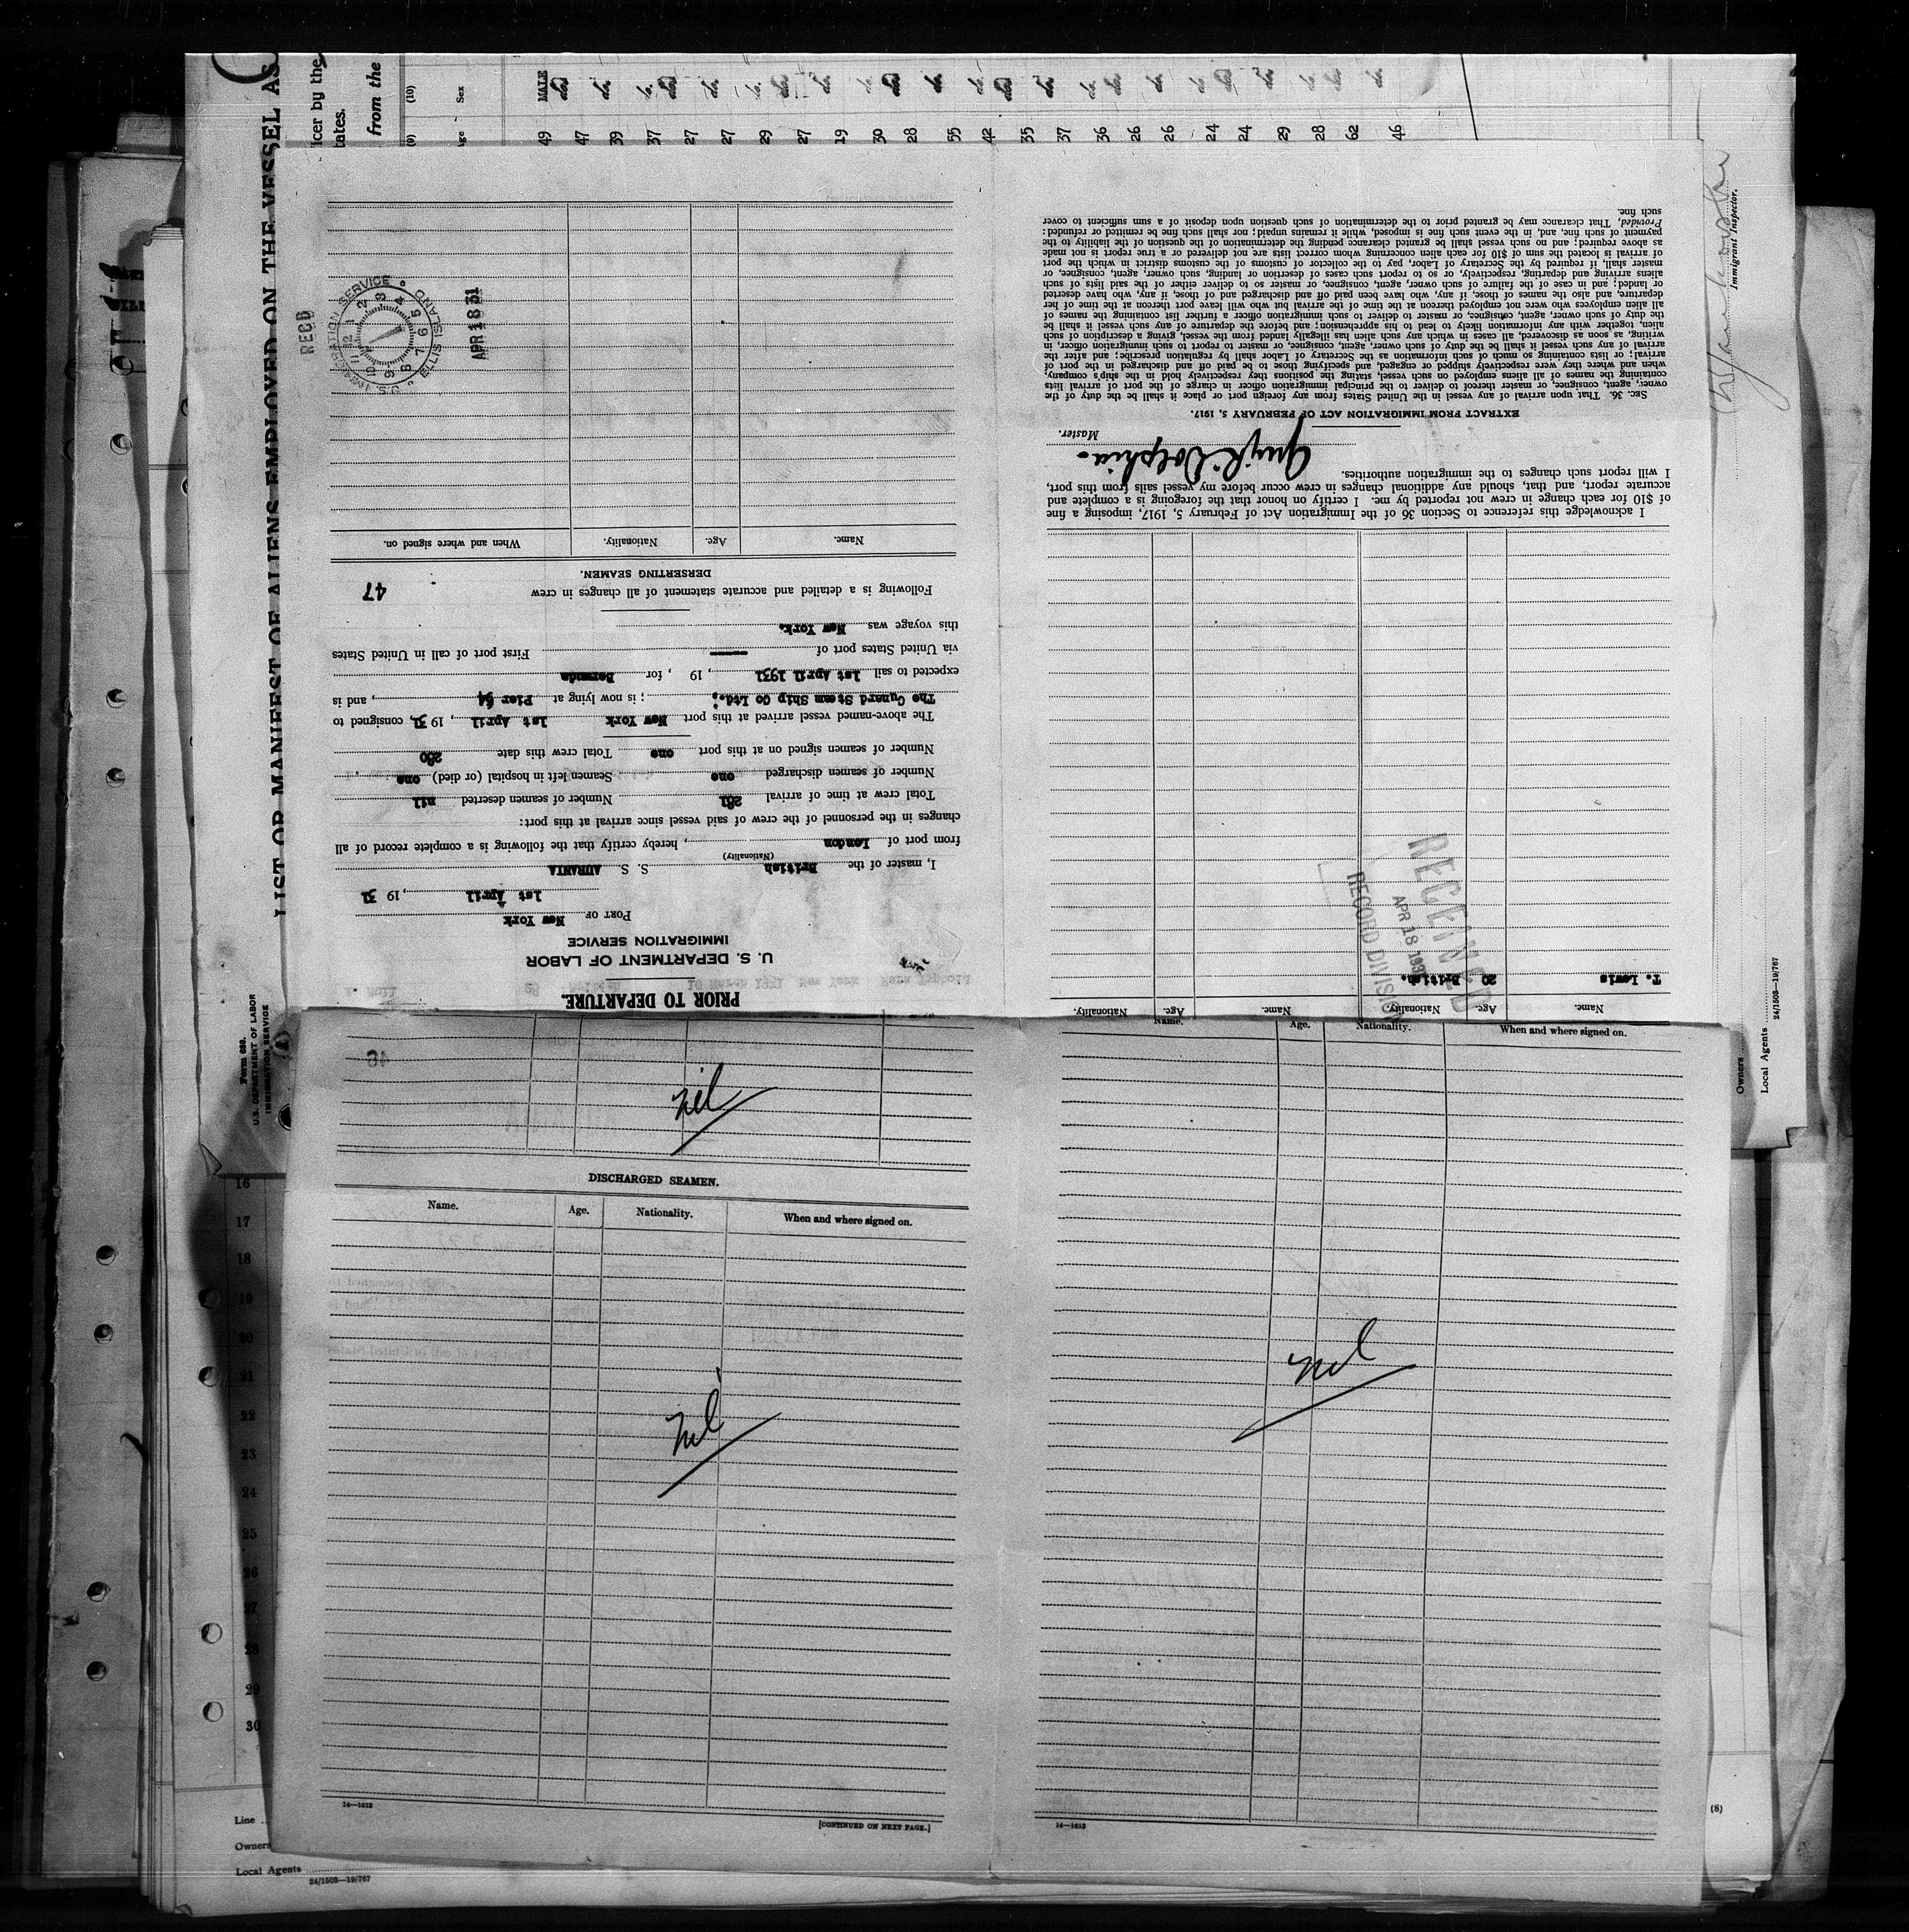 PRIOR TO DEPARTURE.
U. S. DEPARTMENT OF LABOR
IMMIGRATION SERVICE
PORT OF New York
1st April, 19 31
I, master of the British S. S. AURANIA
(Nationality)
from port of London, hereby certify that the following is a complete record of all
changes in the personnel of the crew of said vessel since arrival at this port:
Total crew at time of arrival 281 Number of seamen deserted nil
Number of seamen discharged one Seamen left in hospital (or died) one
Number of seamen signed on at this port one Total crew this date 280
The above-named vessel arrived at this port New York 1st April, 19 31, consigned to
The Cunard Steam Ship Co Ltd.; is now lying at Pier 54, and is
expected to sail 1st April 1931, 19 , for Bermuda
via United States port of — First port of call in United States
this voyage was New York.
Following is a detailed and accurate statement of all changes in crew
47
DERSERTING SEAMEN.
Name. Age. Nationality. When and where signed on.
REC'D
U.S. IMMIGRATION SERVICE
ELLIS ISLAND
APR 18 31
Name. Age. Nationality. Name. Age. Nationality.
T. Lewis 20 British.
RECEIVED
APR 18 1931
RECORD DIVISION
I acknowledge this reference to Section 36 of the Immigration Act of February 5, 1917, imposing a fine
of $10 for each change in crew not reported by me. I certify on honor that the foregoing is a complete and
accurate report, and that, should any additional changes in crew occur before my vessel sails from this port,
I will report such changes to the immigration authorities.
Master.
EXTRACT FROM IMMIGRATION ACT OF FEBRUARY 5, 1917.
SEC. 36. That upon arrival of any vessel in the United States from any foreign port or place it shall be the duty of the
owner, agent, consignee, or master thereof to deliver to the principal immigration officer in charge of the port of arrival lists
containing the names of all aliens employed on such vessel, stating the positions they respectively hold in the ship's company,
when and where they were respectively shipped or engaged, and specifying those to be paid off and discharged in the port of
arrival; or lists containing so much of such information as the Secretary of Labor shall by regulation prescribe; and after the
arrival of any such vessel it shall be the duty of such owner, agent, consignee, or master to report to such immigration officer, in
writing, as soon as discovered, all cases in which any such alien has illegally landed from the vessel, giving a description of such
alien, together with any information likely to lead to his apprehension; and before the departure of any such vessel it shall be
the duty of such owner, agent, consignee, or master to deliver to such immigration officer a further list containing the names of
all alien employees who were not employed thereon at the time of the arrival but who will leave port thereon at the time of the
departure, and also the names of those, if any, who have been paid off and discharged and of those, if any, who have deserted
or landed; and in case of the failure of such owner, agent, consignee, or master so to deliver either of the said lists of such
aliens arriving and departing, respectively, or so to report such cases of desertion or landing, such owner, agent, consignee, or
master shall, if required by the Secretary of Labor, pay to the collector of customs of the customs district in which the port
of arrival is located the sum of $10 for each alien concerning whom correct lists are not delivered or a true report is not made
as above required; and no such vessel shall be granted clearance pending the determination of the question of the liability to the
payment of such fine, and, in the event such fine is imposed, while it remains unpaid; nor shall such fine be remitted or refunded:
Provided, That clearance may be granted prior to the determination of such question upon deposit of a sum sufficient to cover
such fine.
nil
DISCHARGED SEAMEN.
Name. Age. Nationality. When and where signed on.
nil
14—1613
[CONTINUED ON NEXT PAGE.]
Name. Age. Nationality. When and where signed on.
nil
14—1613
LIST OR MANIFEST OF ALIENS EMPLOYED ON THE VESSEL AS
Form 680.
U.S. DEPARTMENT OF LABOR
IMMIGRATION SERVICE
icer by the
tates.
from the
(9) (10)
Sex
49 MALE
47
39
37
27
27
29
27
19
30
28
55
42
35
37
36
26
26
24
24
29
28
62
46
Immigrant Inspector.
Owners
Local Agents
24/1503—19/767
16
17
18
19
20
21
22
23
24
25
26
27
28
29
30
Line
Owners
Local Agents
24/1503—19/767
(8)